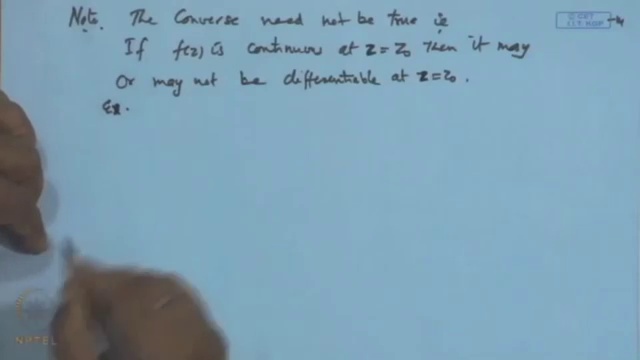 Note. The Converse need not be true ie
If f(z) is continuous at z=z₀ then it may
Or may not be differentiable at z=z₀.
Ex.
© CET
I.I.T. KGP
NPTEL